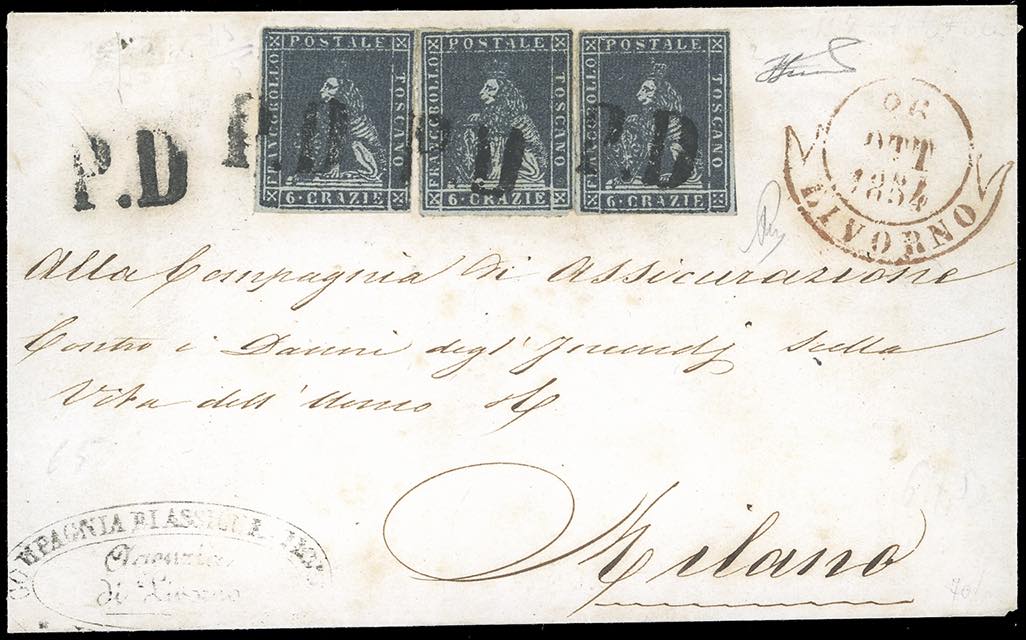 POSTALE POSTALE POSTALE
FRANCOBOLLO TOSCANO FRANCOBOLLO TOSCANO FRANCOBOLLO TOSCANO
6·CRAZIE 6·CRAZIE 6·CRAZIE
P.D P.D P.D P.D
OTT
1854
LIVORNO
Alla Compagnia di Assicurazione
Contro i Danni degl' Incendj sulla
Vita dell' Uomo &
Milano
COMPAGNIA DI ASSICURA
Agenzia
di Livorno